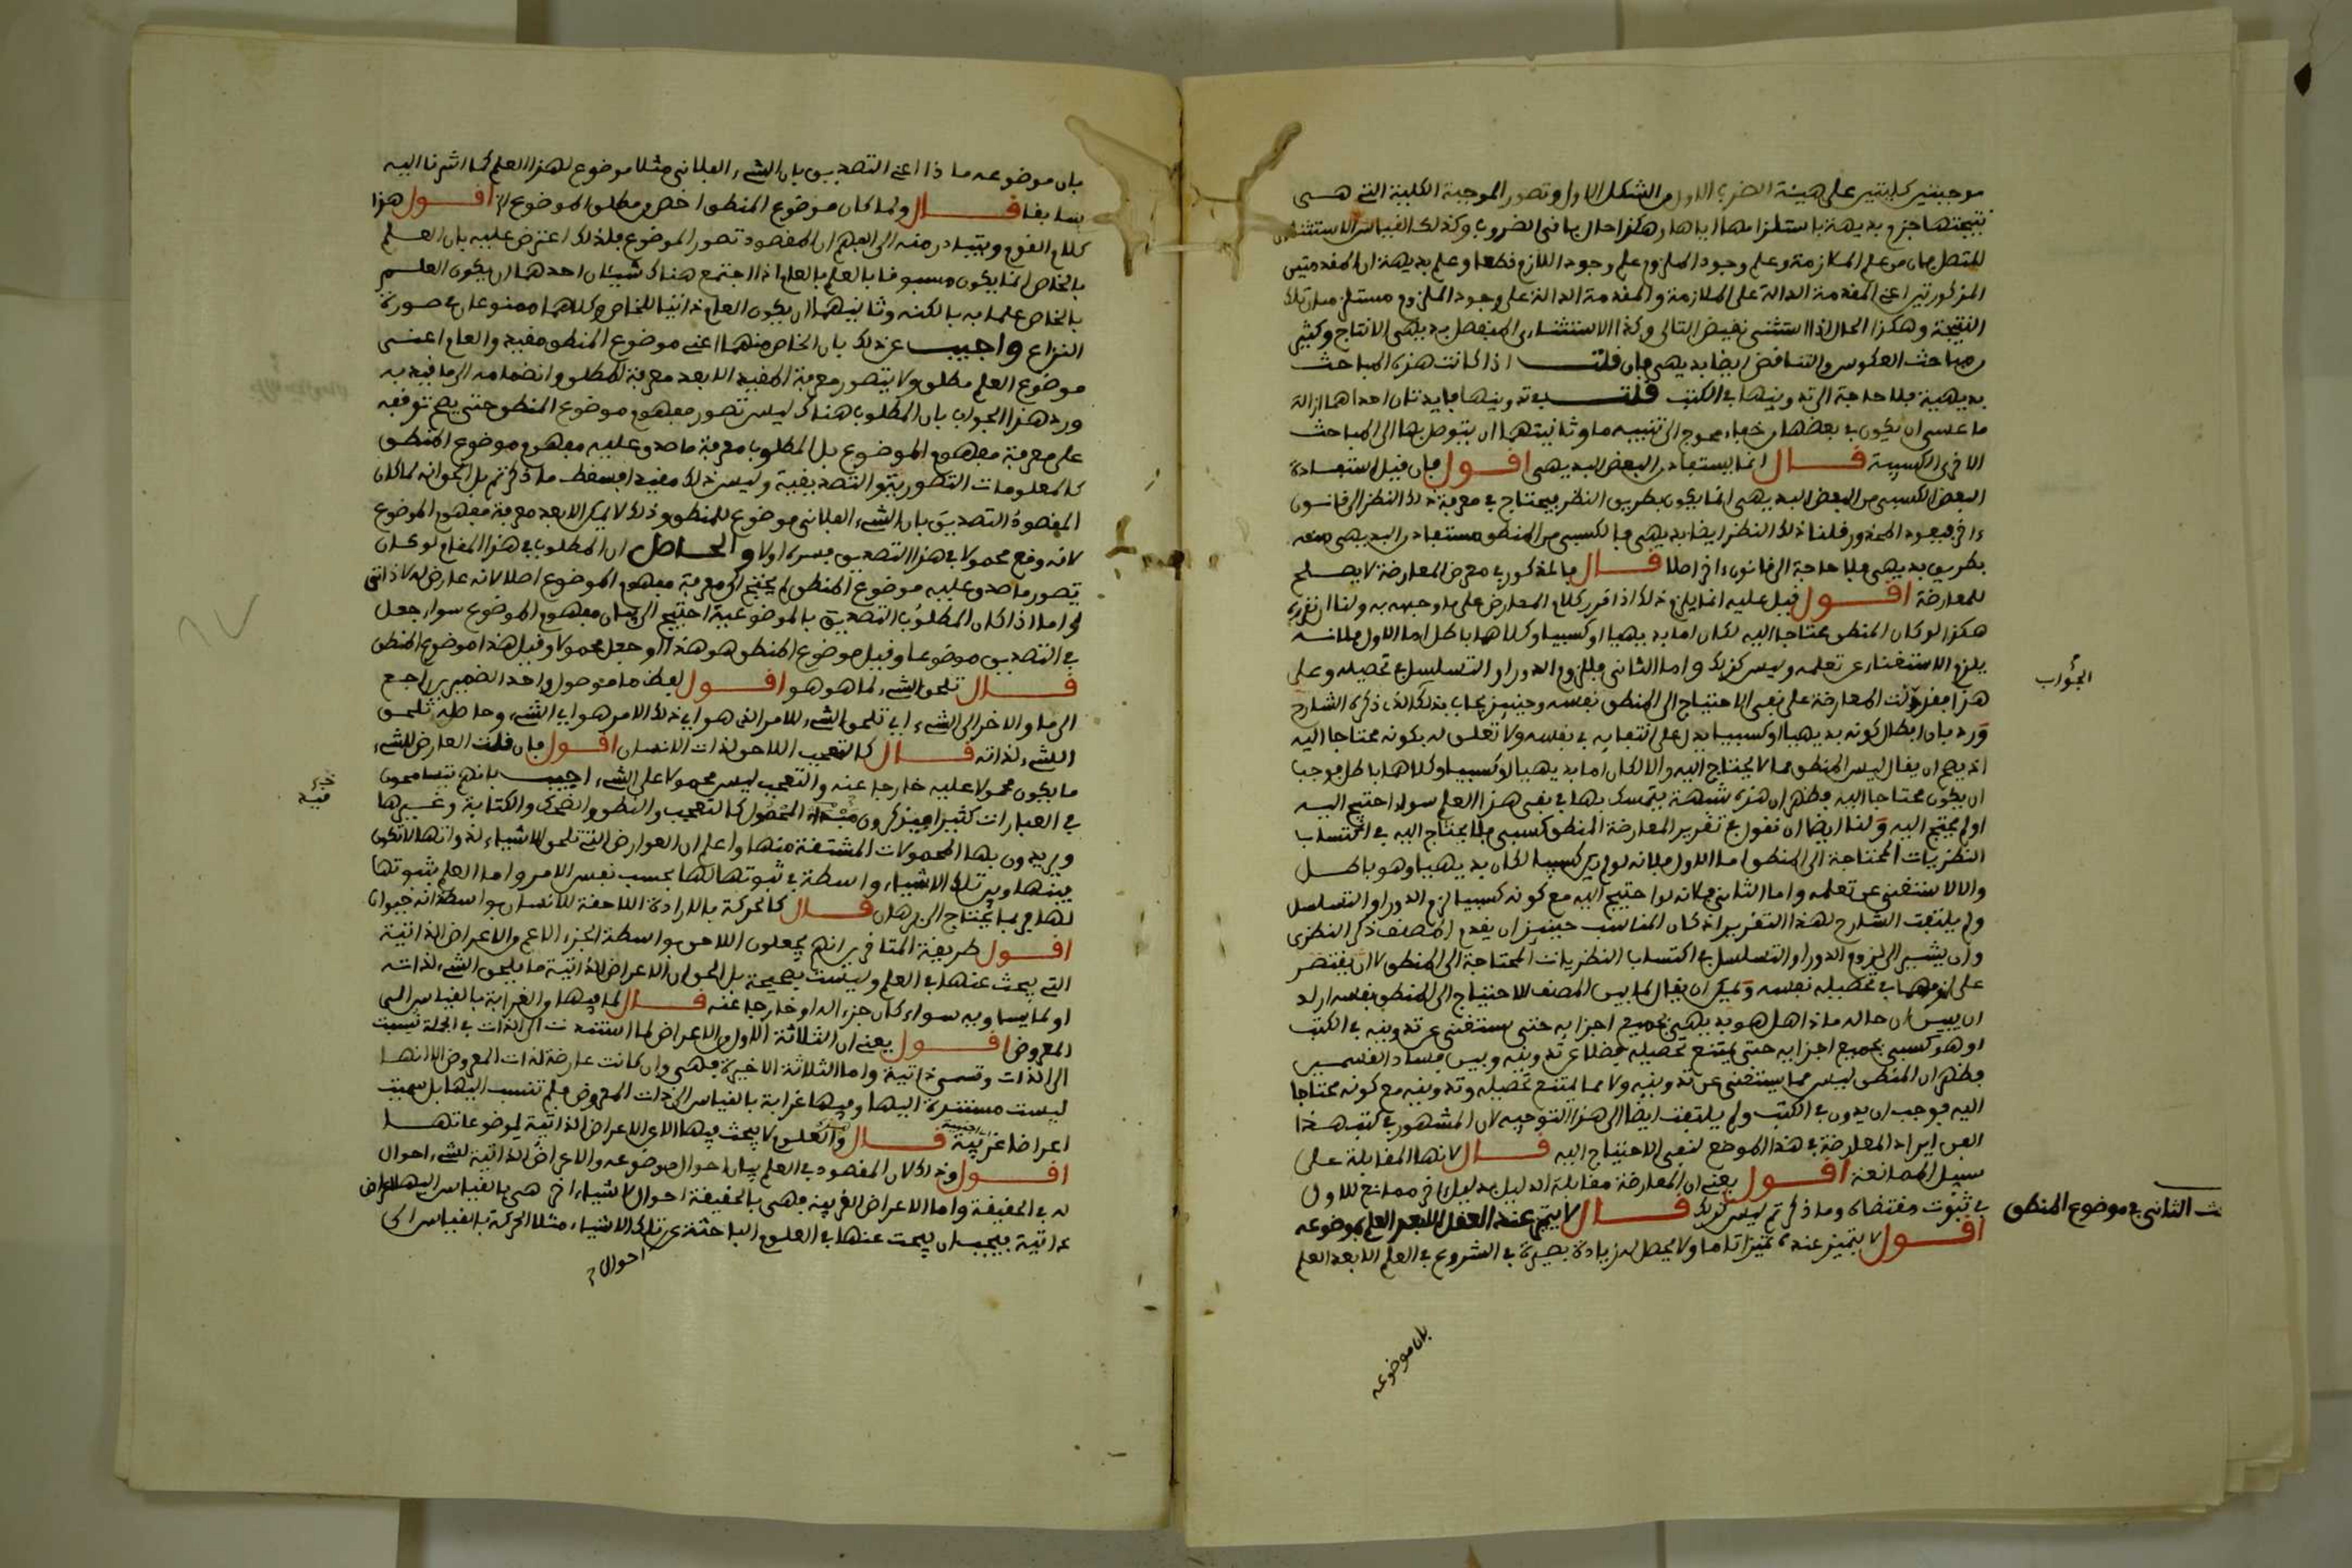 موجبتين كليتين على هيئة الضرب الاول من الشكل الاول وتصور الموجبة الكلية التي هي
نتيجتها جزم بديهة باستلزامهما اياها وهكذا حال باقي الضروب وكذلك القياس الاستثنائي
المتصل فان من علم الملازمة وعلم وجود الملزوم علم وجود اللازم قطعا وعلم بديهة ان المقدمتين
المذكورتين اعني المقدمة الدالة على الملازمة والمقدمة الدالة على وجود الملزوم مستلزمتان تلك
النتيجة وهكذا الحال اذا استثنى نقيض التالي وكذا الاستثنائي المنفصل بديهي الانتاج وكثير
من مباحث العكوس والتناقض ايضا بديهي فان قلت اذا كانت هذه المباحث
بديهية فلا حاجة الى تدوينها في الكتب قلت في تدوينها فايدتان احداهما ازالة
ما عسى ان يكون في بعضها من خفاء محوج الى تنبيه ما وثانيتهما ان يتوصل بها الى المباحث
الاخرى الكسبية قال انما يستفاد من البعض البديهي اقول فان قيل استفادة
البعض الكسبي من البعض البديهي انما يكون بطريق النظر فيحتاج في معرفة ذلك النظر الى قانون
اخر فيعود المحذور قلنا ذلك النظر ايضا بديهي فالكسبي من المنطق مستفاد من البديهي منه
بطريق بديهي فلا حاجة الى قانون اخر اصلا قال فالمذكور في معرض المعارضة لا يصلح
للمعارضة اقول قيل عليه انما يلزم ذلك اذا قرر كلام المعارض على ما وجهه به ولنا ان نقرره
هكذا لو كان المنطق محتاجا اليه لكان اما بديهيا او كسبيا وكلاهما باطل اما الاول فلانه
يلزم الاستغناء عن تعلمه وليس كذلك واما الثاني فللزوم الدور او التسلسل في تحصيله وعلى
هذا فقد دلت المعارضة على نفي الاحتياج الى المنطق نفسه وحينئذ يجاب بذلك الذي ذكره الشارح
ورد بان ابطال كونه بديهيا او كسبيا يدل على انتفايه في نفسه ولا تعلق له بكونه محتاجا اليه
اذ يصح ان يقال ليس المنطق مما لا يحتاج اليه والا لكان اما بديهيا او كسبيا وكلاهما باطل فوجب
ان يكون محتاجا اليه فظهر ان هذه شبهة يتمسك بها في نفي هذا العلم سواء احتيج اليه
او لم يحتج اليه ولنا ايضا ان نقول في تقرير المعارضة المنطق كسبي فلا يحتاج اليه في اكتساب
النظريات المحتاجة الى المنطق اما الاول فلانه لو لم يكن كسبيا لكان بديهيا وهو باطل
والا لاستغني عن تعلمه واما الثاني فلانه لو احتيج اليه مع كونه كسبيا لزم الدور او التسلسل
ولم يلتفت الشارح لهذا التقرير اذ كان المناسب حينئذ ان يقدم المصنف ذكر النظري
وان يشير الى لزوم الدور او التسلسل في اكتساب النظريات المحتاجة الى المنطق لا ان يقتصر
على لزومهما في تحصيله نفسه ويمكن ان يقال لما بين المصنف الاحتياج الى المنطق نفسه اراد
ان يبين ان حاله ماذا هل هو بديهي بجميع اجزايه حتى يستغنى عن تدوينه في الكتب
او هو كسبي بجميع اجزايه حتى يمتنع تحصيله فضلا عن تدوينه وبين فساد القسمين
فظهر ان المنطق ليس مما يستغنى عن تدوينه ولا مما يمتنع تحصيله وتدوينه مع كونه محتاجا
اليه فوجب ان يدون في الكتب ولم يلتفت ايضا الى هذا التوجيه لان المشهور في كتب هذا
الفن ايراد المعارضة في هذا الموضع لنفي الاحتياج اليه قال لانها المقابلة على
سبيل الممانعة اقول يعني ان المعارضة مقابلة الدليل بدليل اخر ممانع للاول
في ثبوت مقتضاه وما ذكر ثم ليس كذلك قال لا يتميز عند العقل الا بعد العلم بموضوعه
اقول لا يتميز عنده تميزا تاما ولا يحصل له زيادة بصيرة في الشروع في العلم الا بعد العلم
بان موضوعه
الجواب
ث الثاني في موضوع المنطق
بان موضوعه ماذا اعني التصديق بان الشيء الفلاني مثلا موضوع لهذا العلم كما اشرنا اليه
سابقا قال ولما كان موضوع المنطق اخص من مطلق الموضوع الخ اقول هذا
كلام القوم ويتبادر منه الى الفهم ان المقصود تصور الموضوع فلذلك اعترض عليه بان العلم
بالخاص انما يكون مسبوقا بالعلم بالعام اذا اجتمع هناك شيئان احدهما ان يكون العلم
بالخاص علما به بالكنه وثانيهما ان يكون العام ذاتيا للخاص وكلاهما ممنوعان في صورة
النزاع واجيب عن ذلك بان الخاص منهما اعني موضوع المنطق مقيد والعام اعني
موضوع العلم مطلق ولا يتصور معرفة المقيد الا بعد معرفة المطلق وانضمامه الى ما قيد به
ورد هذا الجواب بان المطلوب هناك ليس تصور مفهوم موضوع المنطق حتى يصح توقفه
على معرفة مفهوم الموضوع بل المطلوب معرفة ما صدق عليه مفهوم موضوع المنطق
كالمعلومات التصورية والتصديقية وليس ذلك مقيدا فسقط ما ذكرتم بل الجواب انه لما كان
المقصود التصديق بان الشيء الفلاني موضوع للمنطق وذلك لا يمكن الا بعد معرفة مفهوم الموضوع
لانه وقع محمولا في هذا التصديق فسره اولا والحاصل ان المطلوب في هذا المقام لو كان
تصور ما صدق عليه موضوع المنطق لم يحتج الى معرفة مفهوم الموضوع اصلا لانه عارض له لا ذاتي
له اما اذا كان المطلوب التصديق بالموضوعية احتيج الى بيان مفهوم الموضوع سواء جعل
في التصديق موضوعا وقيل موضوع المنطق هو هذا او جعل محمولا وقيل هذا موضوع المنطق
قال تلحق الشيء لما هو هو اقول لفظة ما موصولة واحد الضميرين راجع
الى ما والاخر الى الشيء اي تلحق الشيء للامر الذي هو اي ذلك الامر هو اي الشيء وحاصله تلحق
الشيء لذاته قال كالتعجب اللاحق لذات الانسان اقول فان قلت العارض للشيء
ما يكون محمولا عليه خارجا عنه والتعجب ليس محمولا على الشيء اجيب بانهم يتسامحون
في العبارات كثيرا فيذكرون مبدا المحمول كالتعجب والنطق والضحك والكتابة وغيرها
ويريدون بها المحمولات المشتقة منها واعلم ان العوارض التي تلحق الاشياء لذواتها لا تكون
بينها وبين تلك الاشياء واسطة في ثبوتها لها بحسب نفس الامر واما العلم بثبوتها
لها فربما يحتاج الى برهان قال كالحركة بالارادة اللاحقة للانسان بواسطة انه حيوان
اقول طريقة المتاخرين انهم يجعلون اللاحق بواسطة الجزء الاعم من الاعراض الذاتية
التي يبحث عنها في العلم وليست بصحيحة بل الحق ان الاعراض الذاتية ما يلحق الشيء لذاته
او لما يساويه سواء كان جزءا له او خارجا عنه قال لما فيها من الغرابة بالقياس الى
المعروض اقول يعني ان الثلاثة الاول من الاعراض لما استندت الى الذات في الجملة نسبت
الى الذات وتسمى ذاتية واما الثلاثة الاخيرة فهي وان كانت عارضة لذات المعروض الا انها
ليست مستندة اليها وفيها غرابة بالقياس الى ذات المعروض فلم تنسب اليها بل سميت
اعراضا غريبة قال والعلوم لا يبحث فيها الا عن الاعراض الذاتية لموضوعاتها
اقول وذلك لان المقصود في العلم بيان احوال موضوعه والاعراض الذاتية للشيء احوال
له في الحقيقة واما الاعراض الغريبة فهي بالحقيقة احوال لاشياء اخر هي بالقياس اليها اعراض
ذاتية فيجب ان يبحث عنها في العلوم الباحثة عن تلك الاشياء مثلا الحركة بالقياس الى